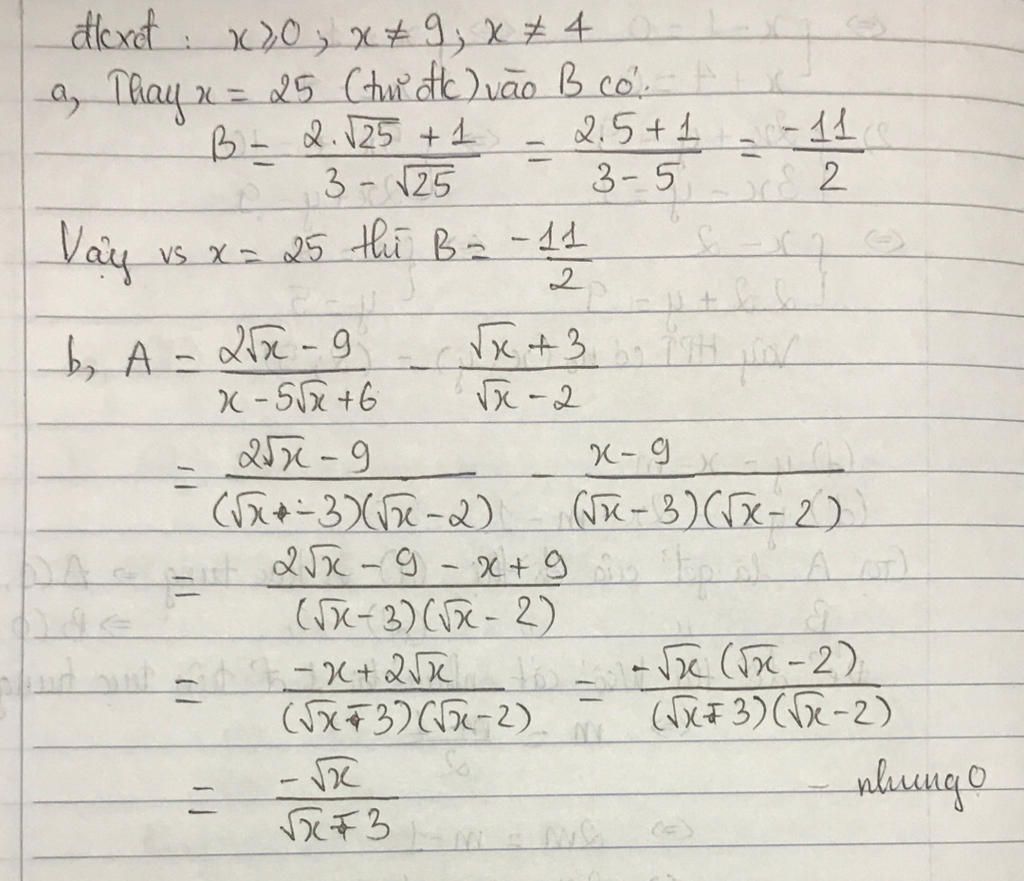 đkxđ : x ⩾ 0 ; x ≠ 9 ; x ≠ 4
a, Thay x = 25 (tm đk) vào B có:
B = (2.√25 + 1)/(3 - √25) = (2.5 + 1)/(3 - 5) = -11/2
Vậy vs x = 25 thì B = -11/2
b, A = (2√x - 9)/(x - 5√x + 6) - (√x + 3)/(√x - 2)
= (2√x - 9)/((√x - 3)(√x - 2)) - (x - 9)/((√x - 3)(√x - 2))
= (2√x - 9 - x + 9)/((√x - 3)(√x - 2))
= (-x + 2√x)/((√x - 3)(√x - 2)) = (-√x (√x - 2))/((√x - 3)(√x - 2))
= (-√x)/(√x - 3) - nhung